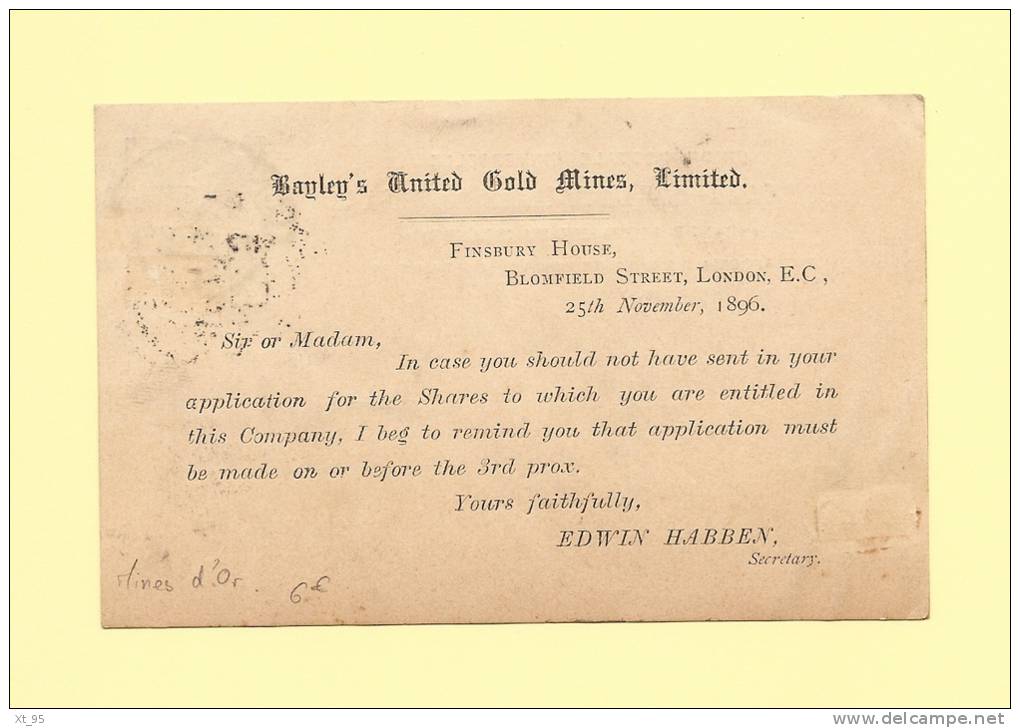 Bayley's United Gold Mines, Limited.
FINSBURY HOUSE,
BLOMFIELD STREET, LONDON, E.C,
25th November, 1896.
Sir or Madam,
In case you should not have sent in your
application for the Shares to which you are entitled in
this Company, I beg to remind you that application must
be made on or before the 3rd prox.
Yours faithfully,
EDWIN HABBEN,
Secretary.
Mines d'Or. 6€
Xt_95
delcampe.net